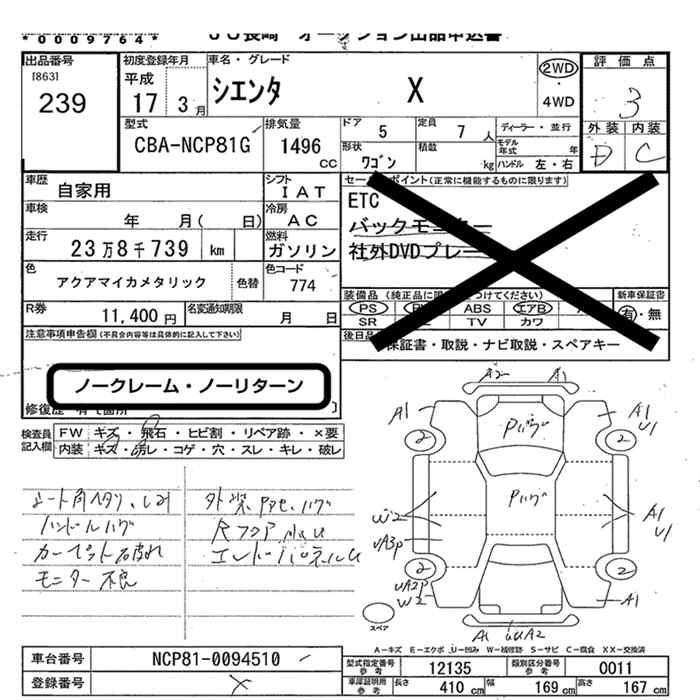 *0009764*
JU長崎 オークション出品申込書
出品番号 [863] 239
初度登録年月 平成 17 3月
車名・グレード シエンタ X
2WD・4WD
評価点 3
外装 内装
D C
型式 CBA-NCP81G
排気量 1496 CC
ドア 5
定員 7 人
ディーラー・並行
形状 ワゴン
積載 kg
モデル年式 年
ハンドル 左・右
車歴 自家用
シフト IAT
セールスポイント(正常に機能するものに限ります)
ETC
バックモニター
社外DVDプレー
車検 年 月( 日)
冷房 AC
走行 23万8千739 km
燃料 ガソリン
色 アクアマイカメタリック 色替
色コード 774
装備品 (純正品に限 つけてください) 新車保証書
PS ABS エアB 有・無
SR TV カワ
R券 11,400円
名変通知期限 月 日
後日 保証書・取説・ナビ取説・スペアキー
注意事項申告欄(不具合内容等は具体的に記入して下さい)
ノークレーム・ノーリターン
修復歴 有 て 箇所
検査員記入欄
FW キズ・飛石・ヒビ割・リペア跡・×要
内装 キズ・汚レ・コゲ・穴・スレ・キレ・破レ
シート角ヘタリ、シミ
ハンドルハゲ
カーペット
モニター不良
外装
エンドパネルU
A2 A1
A1 A1 U1
2 2
Pハゲ
Pハゲ
W2 A1 U1
UA3P
2 2
UA2P W2 A1
A1 UA2
スペア
A-キズ E-エクボ U-凹み W-補修跡 S-サビ C-腐食 XX-交換済
車台番号 NCP81-0094510
登録番号
型式指定番号 参考 12135
類別区分番号 参考 0011
車庫証明用 参考 長さ 410 cm 幅 169 cm 高さ 167 cm